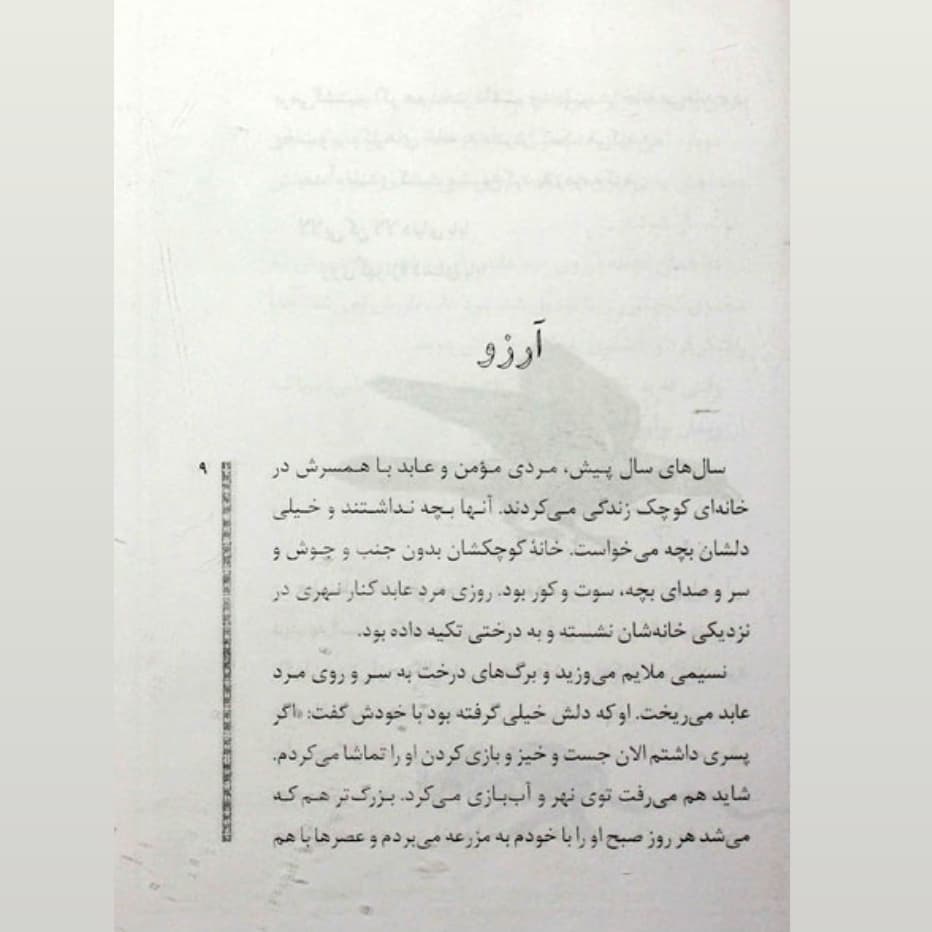 آرزو
سال‌های سال پیش، مردی مؤمن و عابد با همسرش در
۹
خانه‌ای کوچک زندگی می‌کردند. آنها بچه نداشتند و خیلی
دلشان بچه می‌خواست. خانهٔ کوچکشان بدون جنب و جوش و
سر و صدای بچه، سوت و کور بود. روزی مرد عابد کنار نهری در
نزدیکی خانه‌شان نشسته و به درختی تکیه داده بود.
نسیمی ملایم می‌وزید و برگ‌های درخت به سر و روی مرد
عابد می‌ریخت. او که دلش خیلی گرفته بود با خودش گفت: «اگر
پسری داشتم الان جست و خیز و بازی کردن او را تماشا می‌کردم.
شاید هم می‌رفت توی نهر و آب‌بازی می‌کرد. بزرگ‌تر هم که
می‌شد هر روز صبح او را با خودم به مزرعه می‌بردم و عصرها با هم